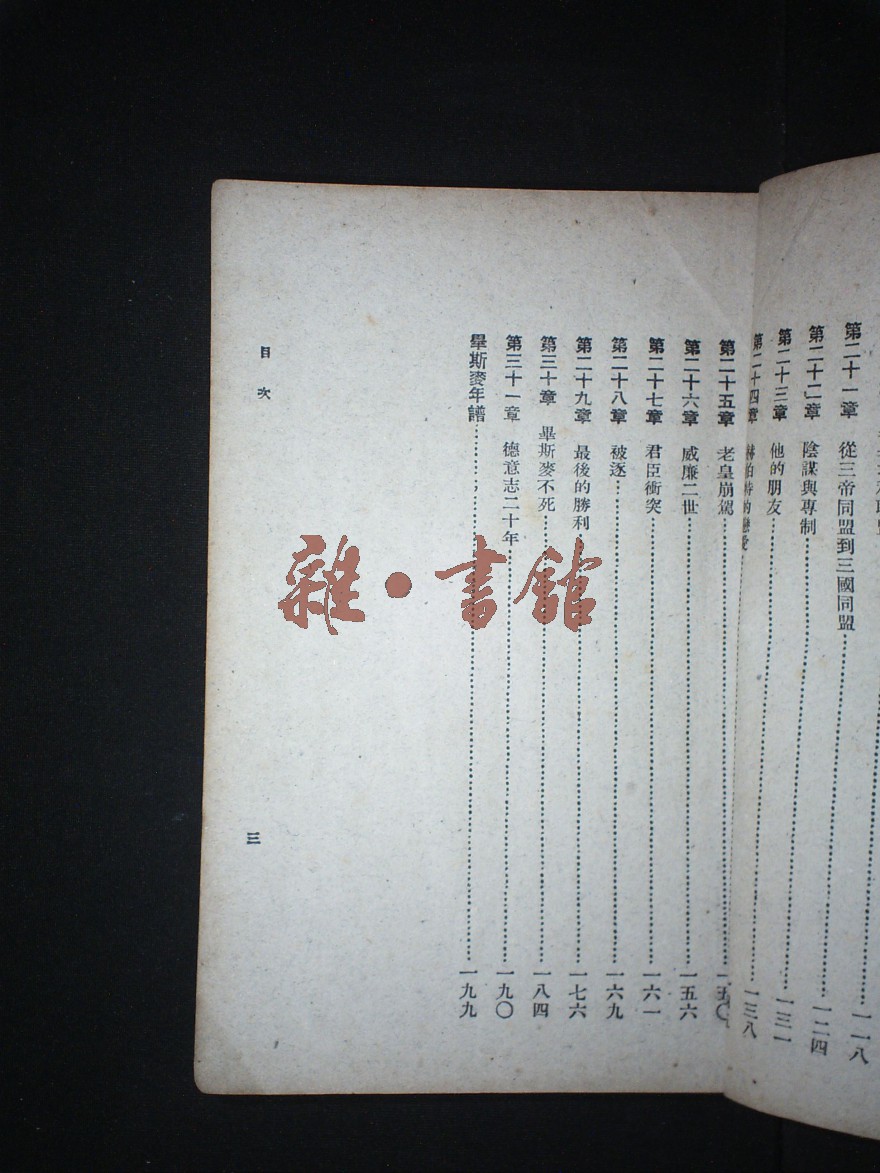 第二十一章 從三帝同盟到三國同盟……一一八
第二十二章 陰謀與專制……一二四
第二十三章 他的朋友……一三一
第二十四章 赫伯特的戀愛……一三八
第二十五章 老皇崩駕……一五〇
第二十六章 威廉二世……一五六
第二十七章 君臣衝突……一六一
第二十八章 被逐……一六九
第二十九章 最後的勝利……一七六
第三十章 畢斯麥不死……一八四
第三十一章 德意志二十年……一九〇
畢斯麥年譜……一九九
目次
三
雜·書館